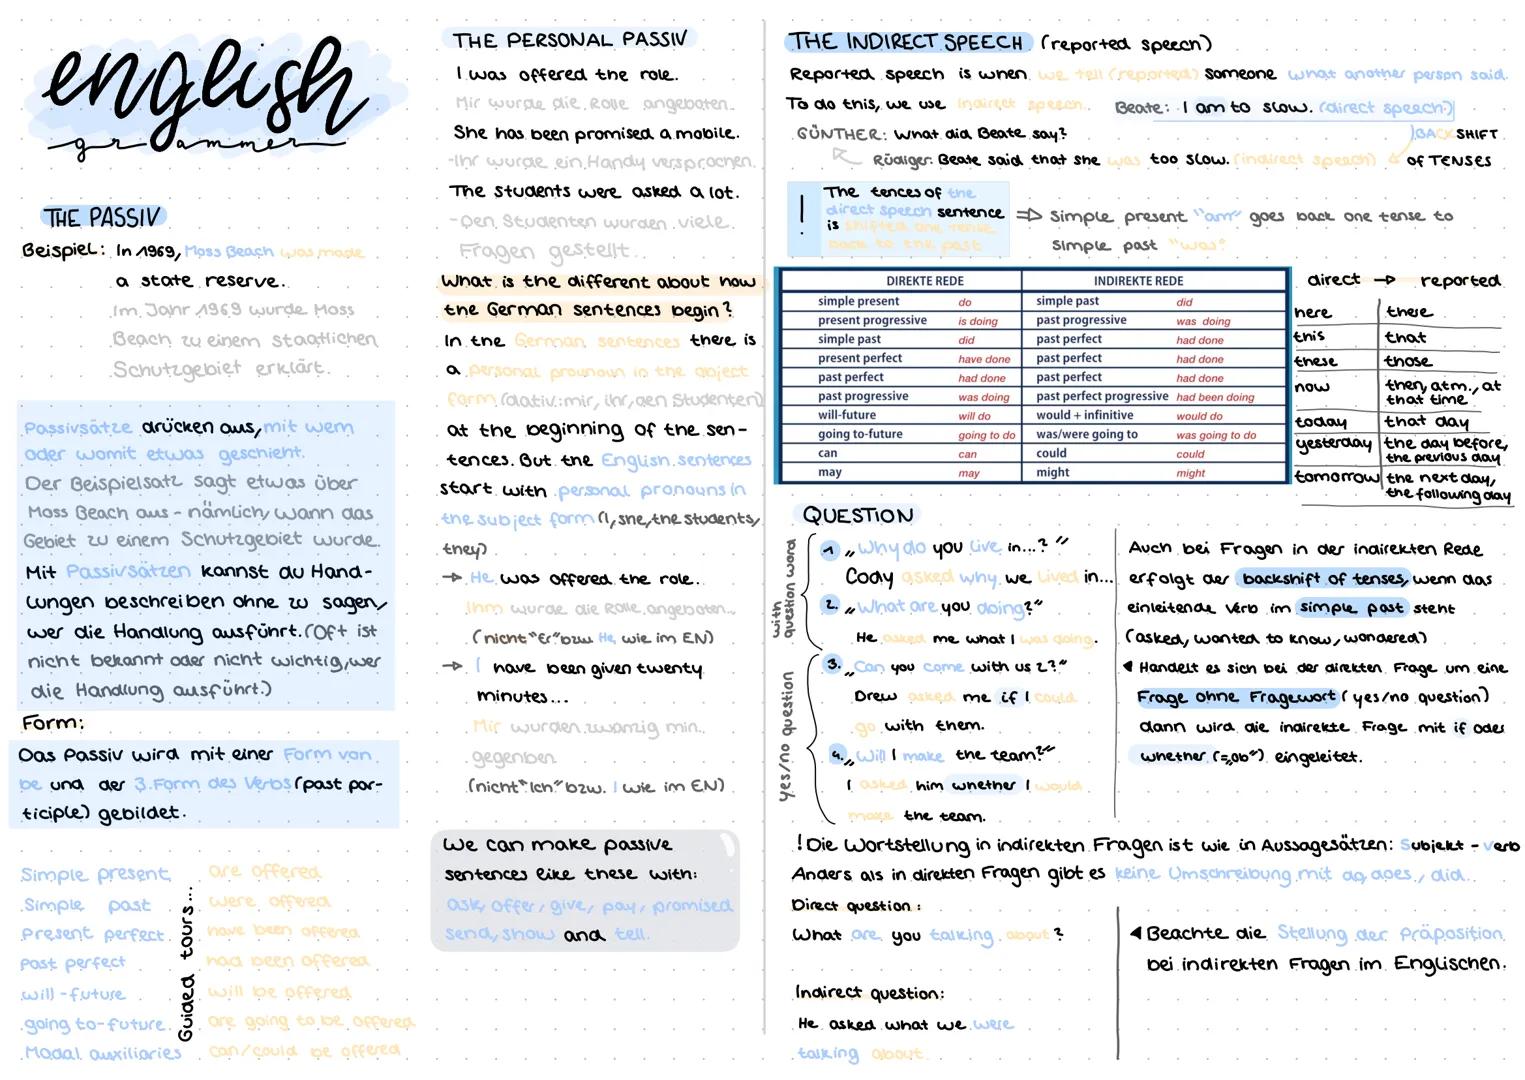 english
grammer
THE PASSIV
Beispiel: In 1969, Moss Beach was made
a state reserve.
Im Jahr 1969 wurde Moss
Beach zu einem staatlichen
Schutzgebiet erklärt.
Passivsätze drücken aus, mit wem
oder womit etwas geschieht.
Der Beispielsatz sagt etwas über
Moss Beach aus - nämlich, wann das
Gebiet zu einem Schutzgebiet wurde.
Mit Passivsätzen kannst du Hand-
lungen beschreiben ohne zu sagen,
wer die Handlung ausführt. (Oft ist
nicht bekannt oder nicht wichtig, wer
die Handlung ausführt.)
Form:
Das Passiv wird mit einer Form von
be und der 3. Form des Verbs (past par-
ticip(le) gebildet.
Guided tours...
Simple present are offered
Simple past were offered
Present perfect have been offered
Past perfect had been offered
will-future will be offered
going to-future are going to be offered
Modal auxiliaries can/could be offered
THE PERSONAL PASSIV
I was offered the role.
Mir wurde die Rolle angeboten.
She has been promised a mobile.
-Ihr wurde ein Handy versprochen.
The students were asked a lot.
-Den Studenten wurden viele
Fragen gestellt.
What is the different about how
the German sentences begin?
In the German sentences there is
a personal pronoun in the object
form (dativ: mir, ihr, den Studenten)
at the beginning of the sen-
tences. But the English sentences
start with personal pronouns in
the subject form (I, she, the students,
they)
→ He was offered the role.
Ihm wurde die Rolle angeboten.
(nicht "Er" bzw. He, wie im EN)
→ I have been given twenty
minutes...
Mir wurden zwanzig min.
gegeben
(nicht "Ich" bzw. I wie im EN)
We can make passive
sentences like these with:
ask, offer, give, pay, promised
send, show and tell.
THE INDIRECT SPEECH (reported speech)
Reported speech is when we tell (reported) someone what another person said.
To do this, we use indirect speech. Beate: I am to slow. (direct speech)
GÜNTHER: What did Beate say? BACKSHIFT
Rüdiger: Beate said that she was too slow. (indirect speech) of TENSES
! The tences of the
direct speech sentence
is shifted one tense
back to the past
⇒ Simple present "am" goes back one tense to
Simple past "was"
DIREKTE REDE INDIREKTE REDE
simple present do simple past did
present progressive is doing past progressive was doing
simple past did past perfect had done
present perfect have done past perfect had done
past perfect had done past perfect had done
past progressive was doing past perfect progressive had been doing
will-future will do would + infinitive would do
going to-future going to do was/were going to was going to do
can can could could
may may might might
direct → reported
here there
this that
these those
now then, atm., at
that time
today that day
yesterday the day before,
the previous day
tomorrow the next day,
the following day
QUESTION
with question word
1 „Why do you live in...?"
Cody asked why we lived in...
2. „What are you doing?"
He asked me what I was doing.
yes/no question
3. „Can you come with us 2?"
Drew asked me if I could
go with them.
4. „Will I make the team?"
I asked him whether I would
make the team.
Auch bei Fragen in der indirekten Rede
erfolgt der backshift of tenses, wenn das
einleitende Verb im simple past steht
(asked, wanted to know, wondered)
◀ Handelt es sich bei der direkten Frage um eine
Frage ohne Fragewort (yes/no question)
dann wird die indirekte Frage mit if oder
whether (=„ob") eingeleitet.
! Die Wortstellung in indirekten Fragen ist wie in Aussagesätzen: Subjekt - Verb
Anders als in direkten Fragen gibt es keine Umschreibung mit do, does, did.
Direct question:
What are you talking about?
Indirect question:
He asked what we were
talking about.
◀ Beachte die Stellung der Präposition
bei indirekten Fragen im Englischen.